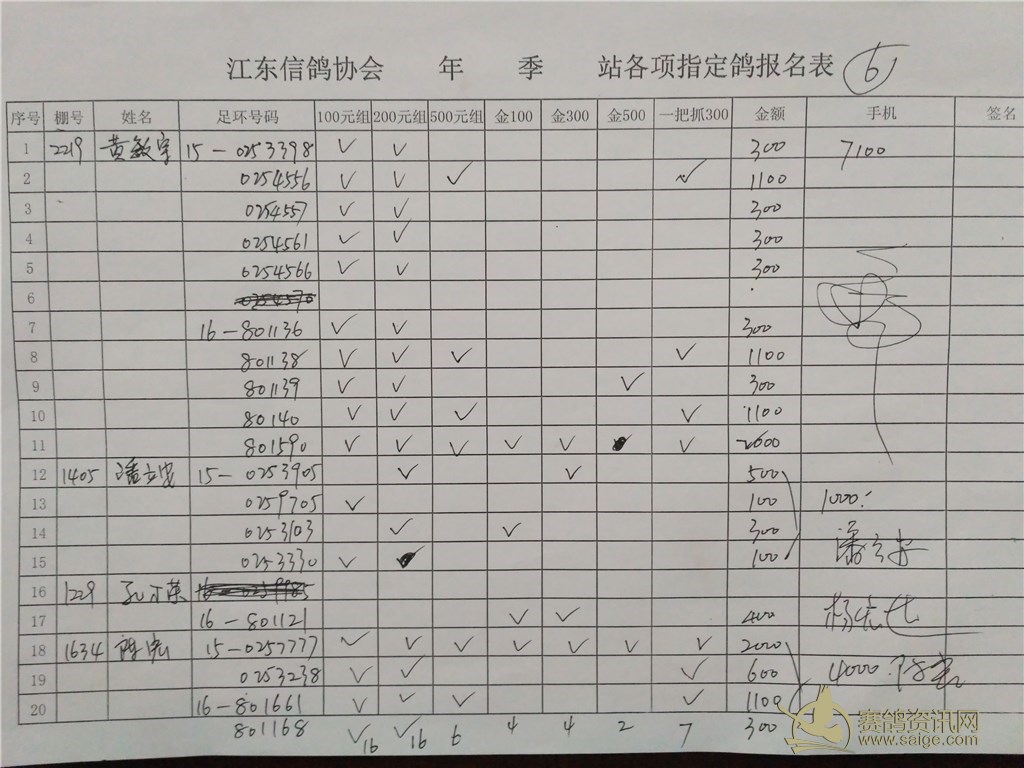 江东信鸽协会 年 季 站各项指定鸽报名表 6
序号 棚号 姓名 足环号码 100元组 200元组 500元组 金100 金300 金500 一把抓300 金额 手机 签名
1 2219 黄敏宇 15-0253398 ✓ ✓ 300 7100
2 0254556 ✓ ✓ ✓ ✓ 1100
3 0254557 ✓ ✓ 300
4 0254561 ✓ ✓ 300
5 0254566 ✓ ✓ 300
6 0254570
7 16-801136 ✓ ✓ 300
8 801138 ✓ ✓ ✓ ✓ 1100
9 801139 ✓ ✓ ✓ 300
10 80140 ✓ ✓ ✓ ✓ 1100
11 801590 ✓ ✓ ✓ ✓ ✓ ✓ 2600
12 1405 潘立安 15-0253905 ✓ ✓ 500
13 0259705 ✓ 100 1000.
14 0253103 ✓ ✓ 300
15 0253330 ✓ 100 潘立安
16 1229
17 16-801121 ✓ ✓ 400
18 1634 陈宏 15-0257777 ✓ ✓ ✓ ✓ ✓ ✓ ✓ 2000
19 0253238 ✓ ✓ ✓ 600 4000. 陈宏
20 16-801661 ✓ ✓ ✓ ✓ 1100
801168 ✓ ✓ 300
16 16 6 4 4 2 7
赛鸽资讯网
www.saige.com